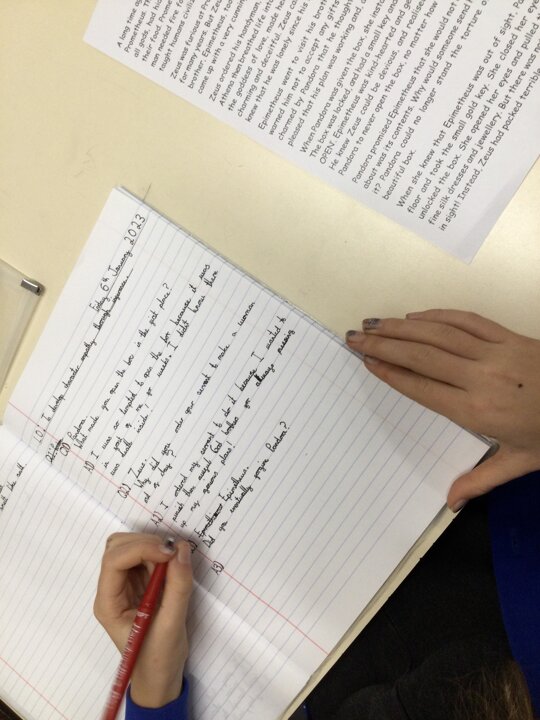 A long time ago
Prometheus. Th
all gods, had hid
their food. Prom
man needed fire fo
taught humans civiliz
Zeus was furious at Pro
for many years. But Zeus
brother, Epimetheus, too.
come up with a very cunning
Zeus ordered his handyman,
Athena then breathed life into
the goddess of love, made her
charming and deceitful. Zeus
knew that he was lonely since his
Epimetheus went to visit his brot
warned him not to accept any gifts
charmed by Pandora that he thought
pleased that his plan was working and
When Pandora was given the box, she
The box was locked, and had a small key and
OPEN'. Epimetheus was kind-hearted and
He knew Zeus could be devious, and realised
Pandora to never open the box, no matter how
Pandora promised Epimetheus that she would not
about was its contents. Why would someone send
it? Pandora could no longer stand the torture o
beautiful box.
When she knew that Epimetheus was out of sight, Pa
floor and took the small gold key. She closed her eye
unlocked the box. She opened her eyes and pulled th
fine silk dresses and jewellery. But there was no
in sight! Instead, Zeus had packed terrible
Friday 6th January 2023
L.O. I to develop character empathy through
Q1) Pandora,
What made you open the box in the first place?
A1) I was so tempted to open the box because it was
in front of me for weeks. I didnt know there
was hell inside!
Q2) Zeus,
Why did you order your servant to make a woman
out of clay?
A2) I ordered my servant to do it because I wanted to
punish those God brothers for always messing
up my plans!
Epimetheus,
Did you eventually forgive Pandora?
A3)